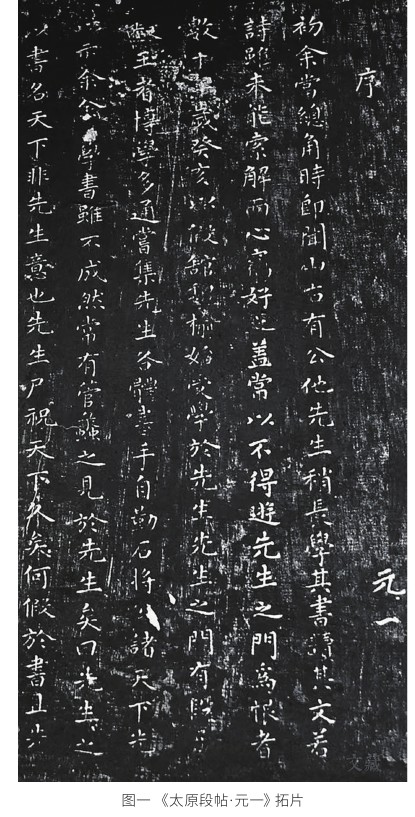 序
元一
初余當總角時即聞山右有公他先生稍長學其書讀其文若
詩雖未能索解而心竊好之蓋常以不得遊先生之門為恨者
數十歲癸亥假館榆始受學於先生先生之門有段
者博學多通嘗集先生各體書手自勒石將諸天下先
余學書雖不成然常有管蠡之見於先生矣曰先生之
以書名天下非先生意也先生尸祝天下久矣何假於書且先
图一 《太原段帖·元一》拓片